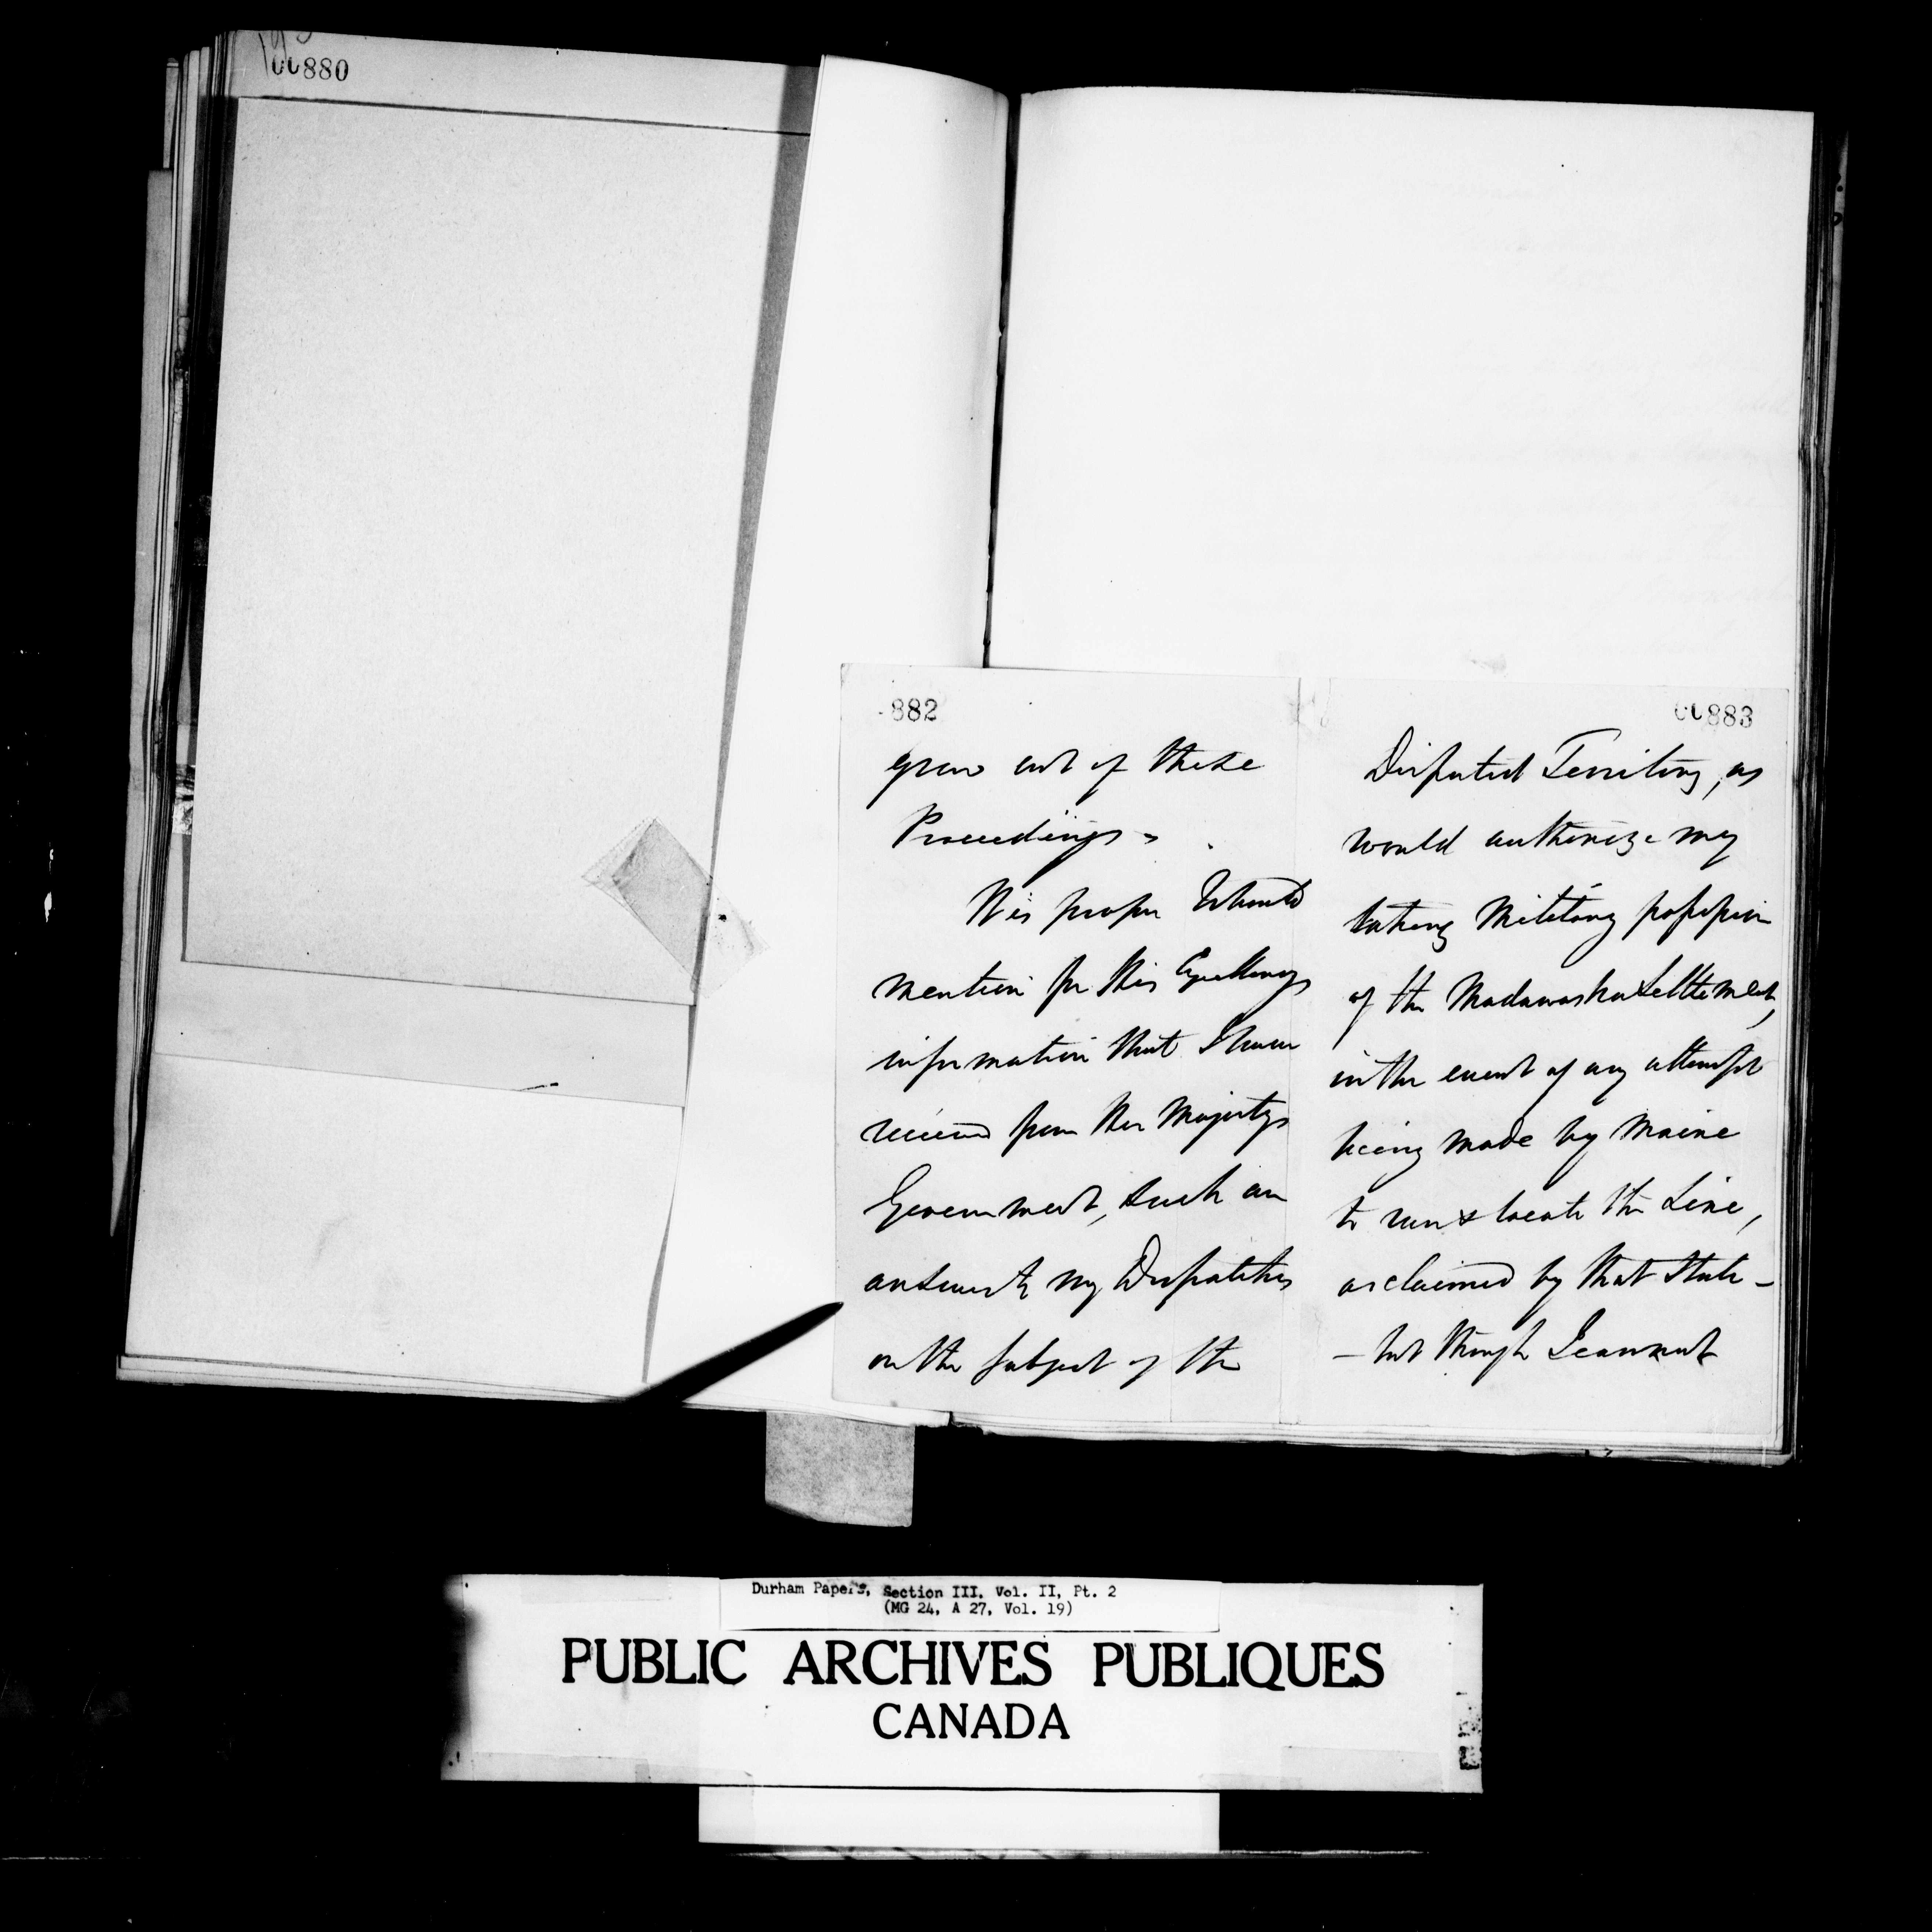 00880
882
grow out of these
Proceedings.
It is proper I should
mention for His Excellency's
information that I have
received from Her Majesty's
Government, such an
answer to my Despatches
on the subject of the
00883
Disputed Territory, as
would authorize my
taking Military possession
of the Madawaska Settlement,
in the event of any attempt
being made by Maine
to run & locate the Line,
as claimed by that State -
- but though I cannot
Durham Papers, Section III. Vol. II, Pt. 2
(MG 24, A 27, Vol. 19)
PUBLIC ARCHIVES PUBLIQUES
CANADA